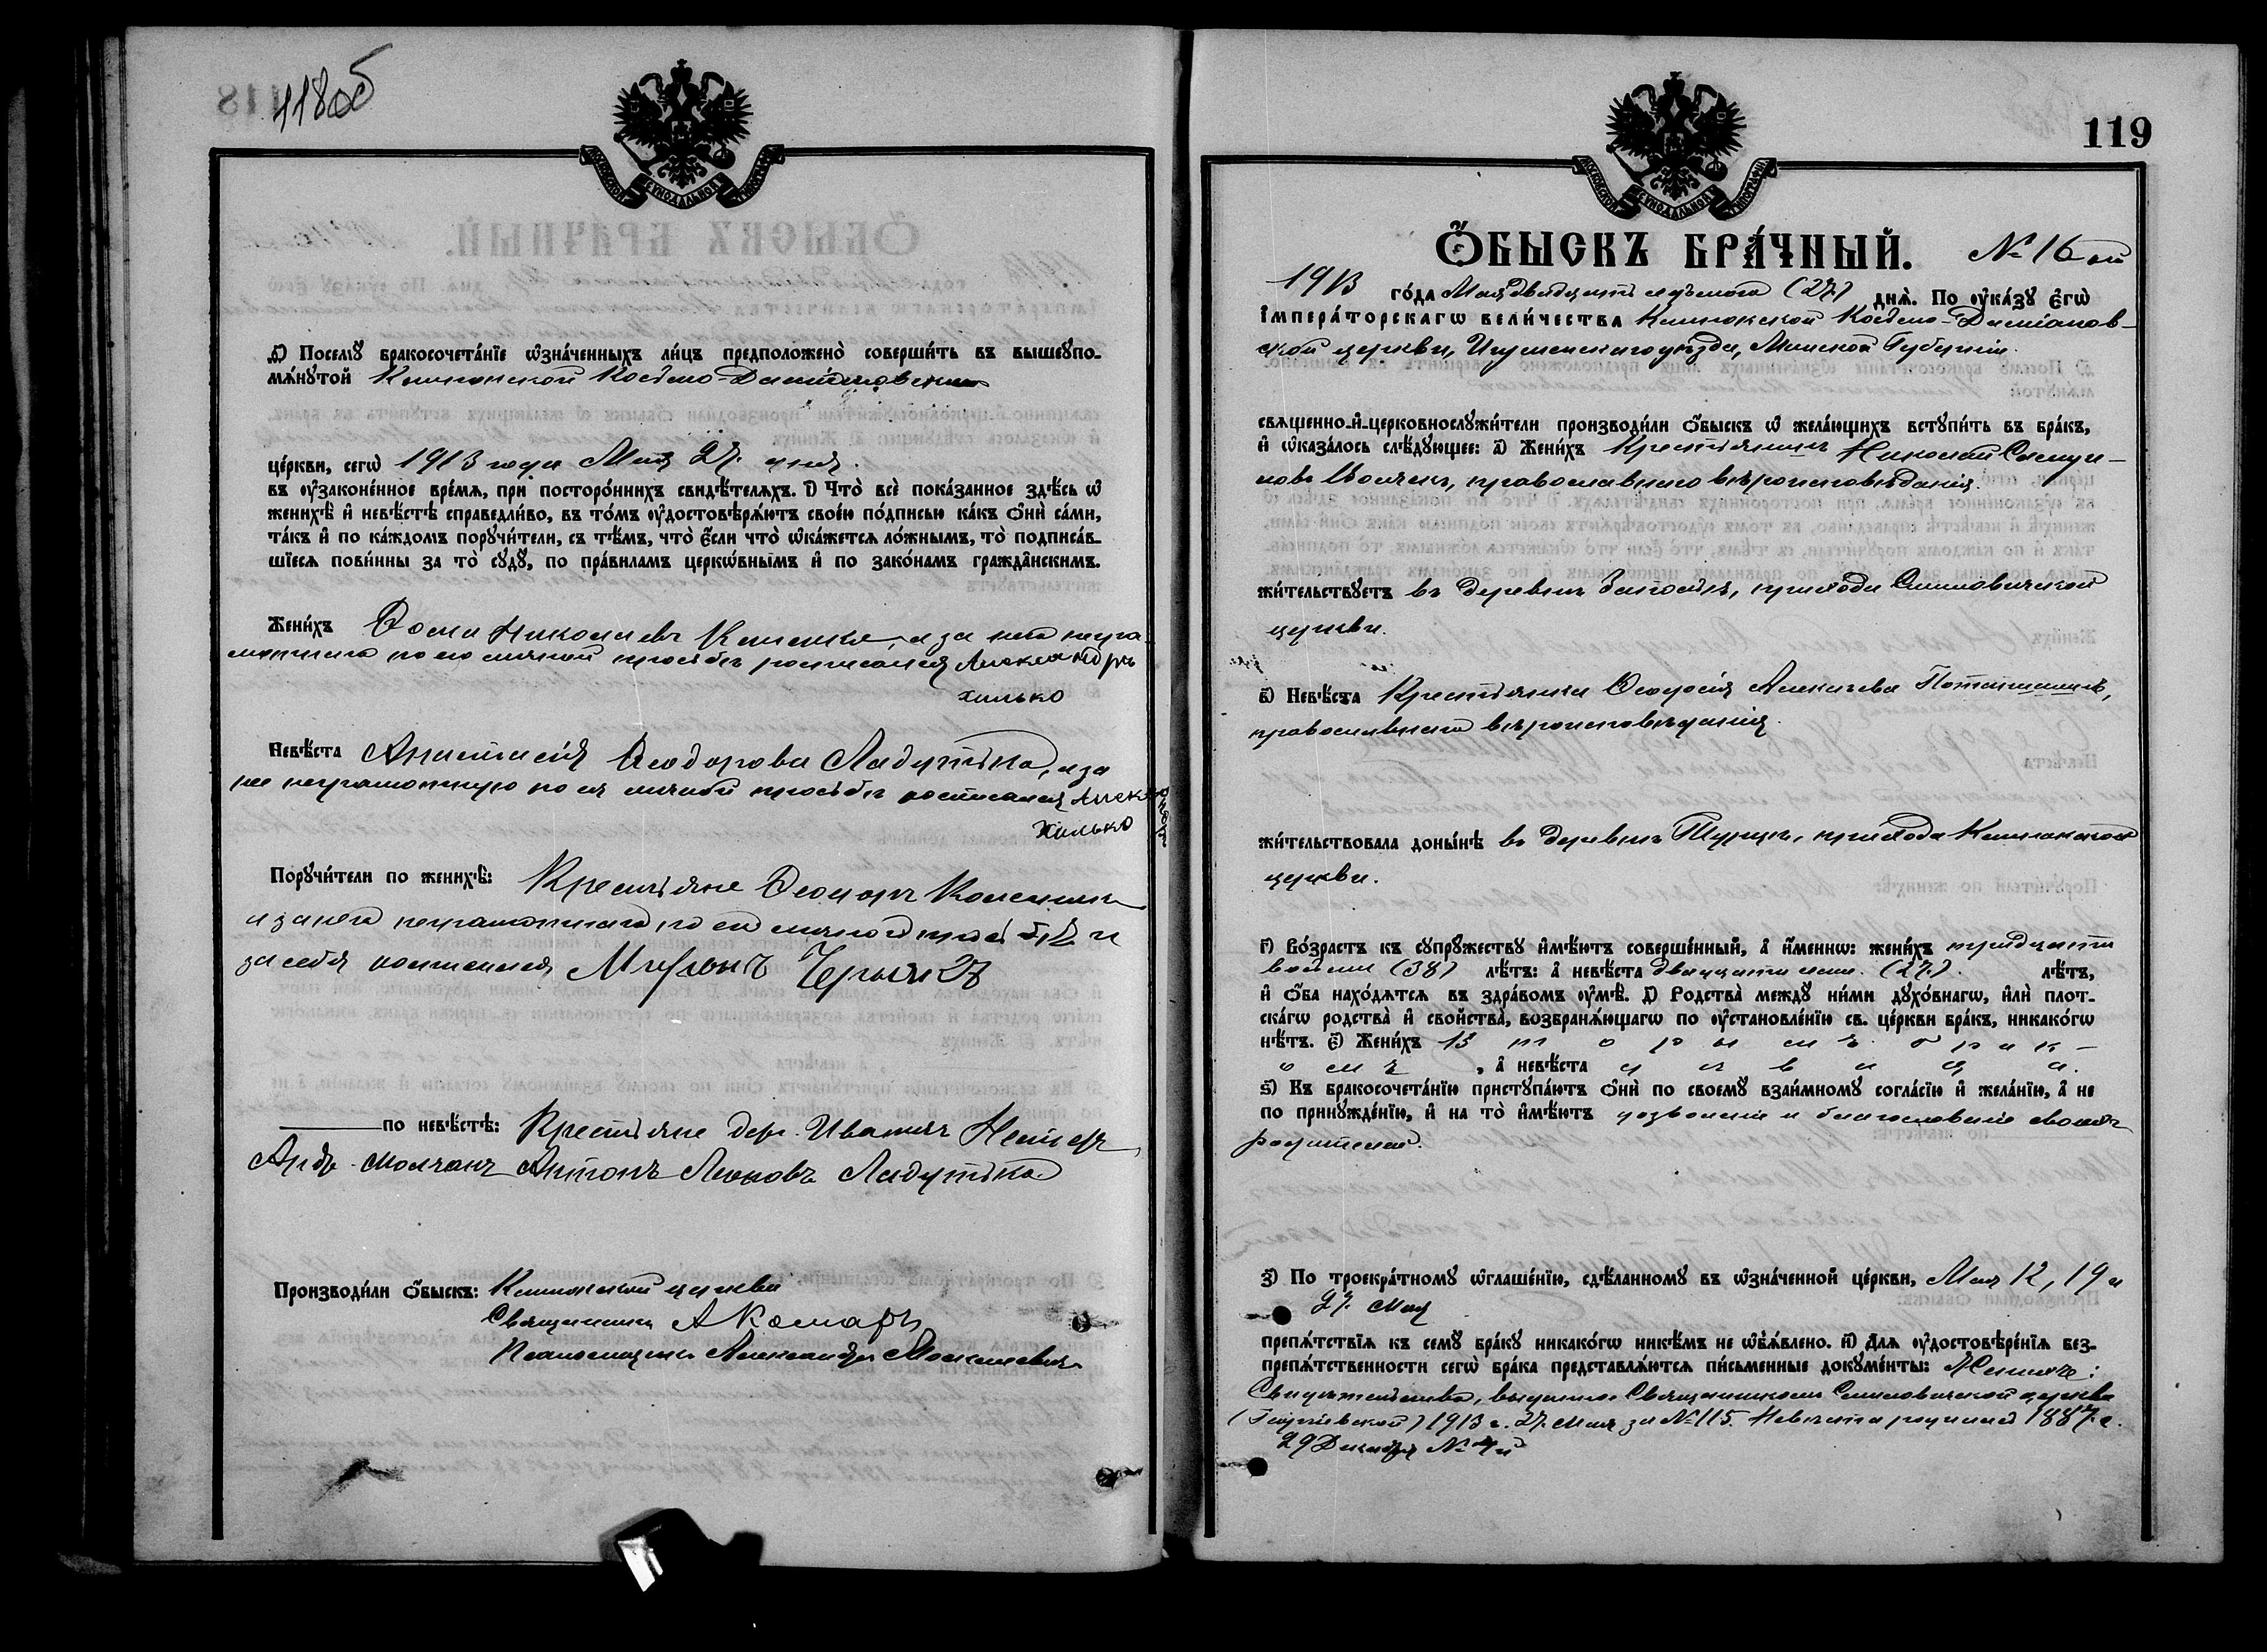 118 об
МОСКОВСКОЙ СѴНОДАЛЬНОЙ ТИПОГРАФІИ
д҃і) Посемꙋ̀ бракосочета́нїе ѡ҆зна́ченныхъ ли́цъ предположено̀ соверши́ть въ вышеупо-
мѧ́нутой Клинокской Космо-Даміановской
це́ркви, сегѡ̀ 1913 года Мая 27 дня.
въ ᲂу҆зако́ненное вре́мѧ, при посторо́ннихъ свидѣ́телѧхъ. і҃) Что̀ всѐ пока́занное здѣ́сь ѡ҆
женихѣ̀ и҆ невѣ́стѣ справедли́во, въ то́мъ ᲂу҆достовѣрѧ́ютъ свое́ю по́дписью ка́къ ѻ҆нѝ са́ми,
та́къ и҆ по ка́ждомъ поручи́тели, съ тѣ́мъ, что̀ є҆́сли что̀ ѡ҆ка́жетсѧ ло́жнымъ, то̀ подписа́в-
шїесѧ пови́нны за то̀ сꙋдꙋ̀, по пра́виламъ церкѡ́внымъ и҆ по зако́намъ гражда́нскимъ.
Жени́хъ Ѳома Николаевъ а за него негра-
мотнаго по его личной просьбѣ росписался Александръ
Хилько
Невѣ́ста Анастасія Ѳеодорова Ладутько, а за
нее неграмотную по ея личной просьбѣ росписался Александръ
Хилько
Поручи́тели по женихѣ̀: Крестьяне Ѳеодоръ
а за него неграмотнаго по его личной просьбѣ и
за себя росписался Миронъ
по невѣ́стѣ: Крестьяне дер. Иваничъ Несторъ
Молчанъ Антонъ Ладутько
Производи́ли ѻ҆́быскъ: Клинокской церкви
Священникъ А Комаръ
Псаломщикъ Александръ
119
МОСКОВСКОЙ СѴНОДАЛЬНОЙ ТИПОГРАФІИ
Ѻ҆́БЫСКЪ БРА́ЧНЫЙ. № 16ый
1913 го́да Мая двадцать седьмого (27) днѧ̀. По ᲂу҆ка́зꙋ Є҆гѡ̀
І҆мпера́торскагѡ вели́чества Клинокской Космо-Даміанов-
ской церкви, Игуменскаго уѣзда, Минской Губерніи.
свѧще́нно-и҆-церковнослꙋжи́тели производи́ли ѻ҆́быскъ ѡ҆ жела́ющихъ встꙋпи́ть въ бра́къ,
и҆ ѡ҆каза́лось слѣ́дующее: а҃) Жени́хъ Крестьянинъ Николай Самуи-
ловъ православнаго вѣроисповѣданія.
жи́тельствꙋетъ въ деревнѣ прихода Смиловичской
церкви.
в҃) Невѣ́ста Крестьянка Ѳеодосія
православнаго вѣроисповѣданія.
жи́тельствовала доны́нѣ въ деревнѣ Турцѣ, прихода Клинокской
церкви.
г҃) Во́зрастъ къ сꙋпрꙋ́жествꙋ и҆мѣ́ютъ соверше́нный, а҆ и҆́меннѡ: жени́хъ тридцати
восьми (38) лѣ́тъ: а҆ невѣ́ста двадцати семи (27) лѣ́тъ,
и҆ ѻ҆́ба нахо́дѧтсѧ въ здра́вомъ ᲂу҆мѣ̀. д҃) Родства̀ междꙋ̀ ни́ми дꙋхо́внагѡ, и҆лѝ плот-
ска́гѡ родства̀ и҆ сво́йства, возбранѧ́ющагѡ по ᲂу҆становле́нїю св. це́ркви бра́къ, никако́гѡ
нѣ́тъ. є҃) Жени́хъ вторымъ брак-
омъ, а҆ невѣ́ста дѣвица.
ѕ҃) Къ бракосочета́нїю пристꙋпа́ютъ ѻ҆нѝ по своемꙋ̀ взаи́мномꙋ согла́сїю и҆ жела́нїю, а҆ не
по принꙋжде́нїю, и҆ на то̀ и҆мѣ́ютъ дозволеніе и благословеніе своихъ
родителей.
з҃) По троекра́тномꙋ ѡ҆глаше́нїю, сдѣ́ланномꙋ въ ѡ҆зна́ченной це́ркви, Мая 12, 19 и
27 мая
препѧ́тствїѧ къ семꙋ̀ бра́кꙋ никако́гѡ никѣ́мъ не ѡ҆б̾ѧ́влено. и҃) Длѧ ᲂу҆достовѣре́нїѧ без-
препѧ́тственности сегѡ̀ бра́ка представлѧ́ютсѧ пи́сьменные докꙋме́нты: Жениха:
Свидѣтельство, выданное Священникомъ Смиловичской церкви
(Георгіевской) 1913 г. 27 мая за № 115. Невѣста родилась 1887 г.
29 Декабря № 4й